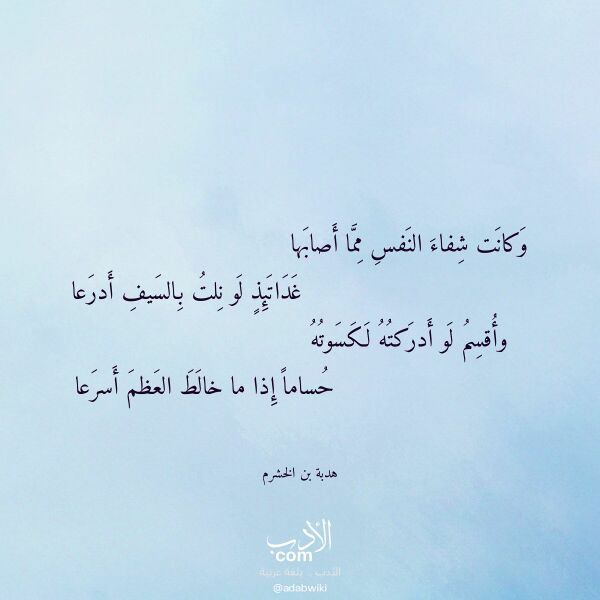 وَكانَت شِفاءَ النَفسِ مِمَّا أَصابَها
غَدَاتَئِذٍ لَو نِلتُ بِالسَيفِ أَدرَعا
وأُقسِمُ لَو أَدرَكتُهُ لَكَسَوتُهُ
حُساماً إِذا ما خالَطَ العَظمَ أَسرَعا
هدبة بن الخشرم
الأدب
com
الأدب .. بلغة عربية
@adabwiki